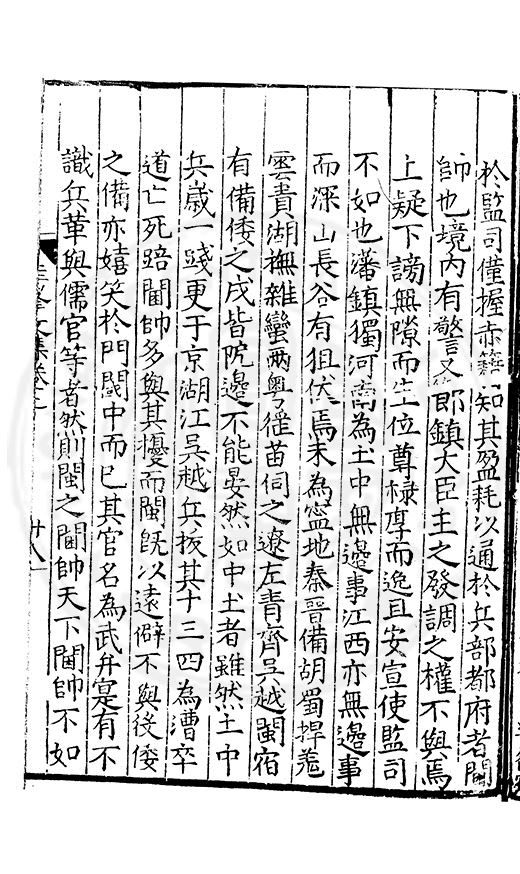 於監司僅握赤籍知其盈耗以通於兵部都府者閫
帥也境內有警又 即鎮大臣主之發調之權不與焉
上疑下謗無隙而生位尊祿厚而逸且安宣使監司
不如也藩鎮獨河南為土中無邊事江西亦無邊事
而深山長谷有狙伏焉未為寍地秦晉備胡蜀捍羗
雲貴湖撫雜蠻兩粵徭苗伺之遼左青齊吳越閩宿
有備倭之戍皆阨邊不能晏然如中土者雖然土中
兵歲一踐更于京湖江吳越兵拔其十三四為漕卒
道亡死踣閫帥多與其擾而閩旣以遠僻不與後倭
之備亦嬉笑於門閾中而已其官名為武弁寔有不
識兵革與儒官等者然則閩之閫帥天下閫帥不如
文集卷之 廿八